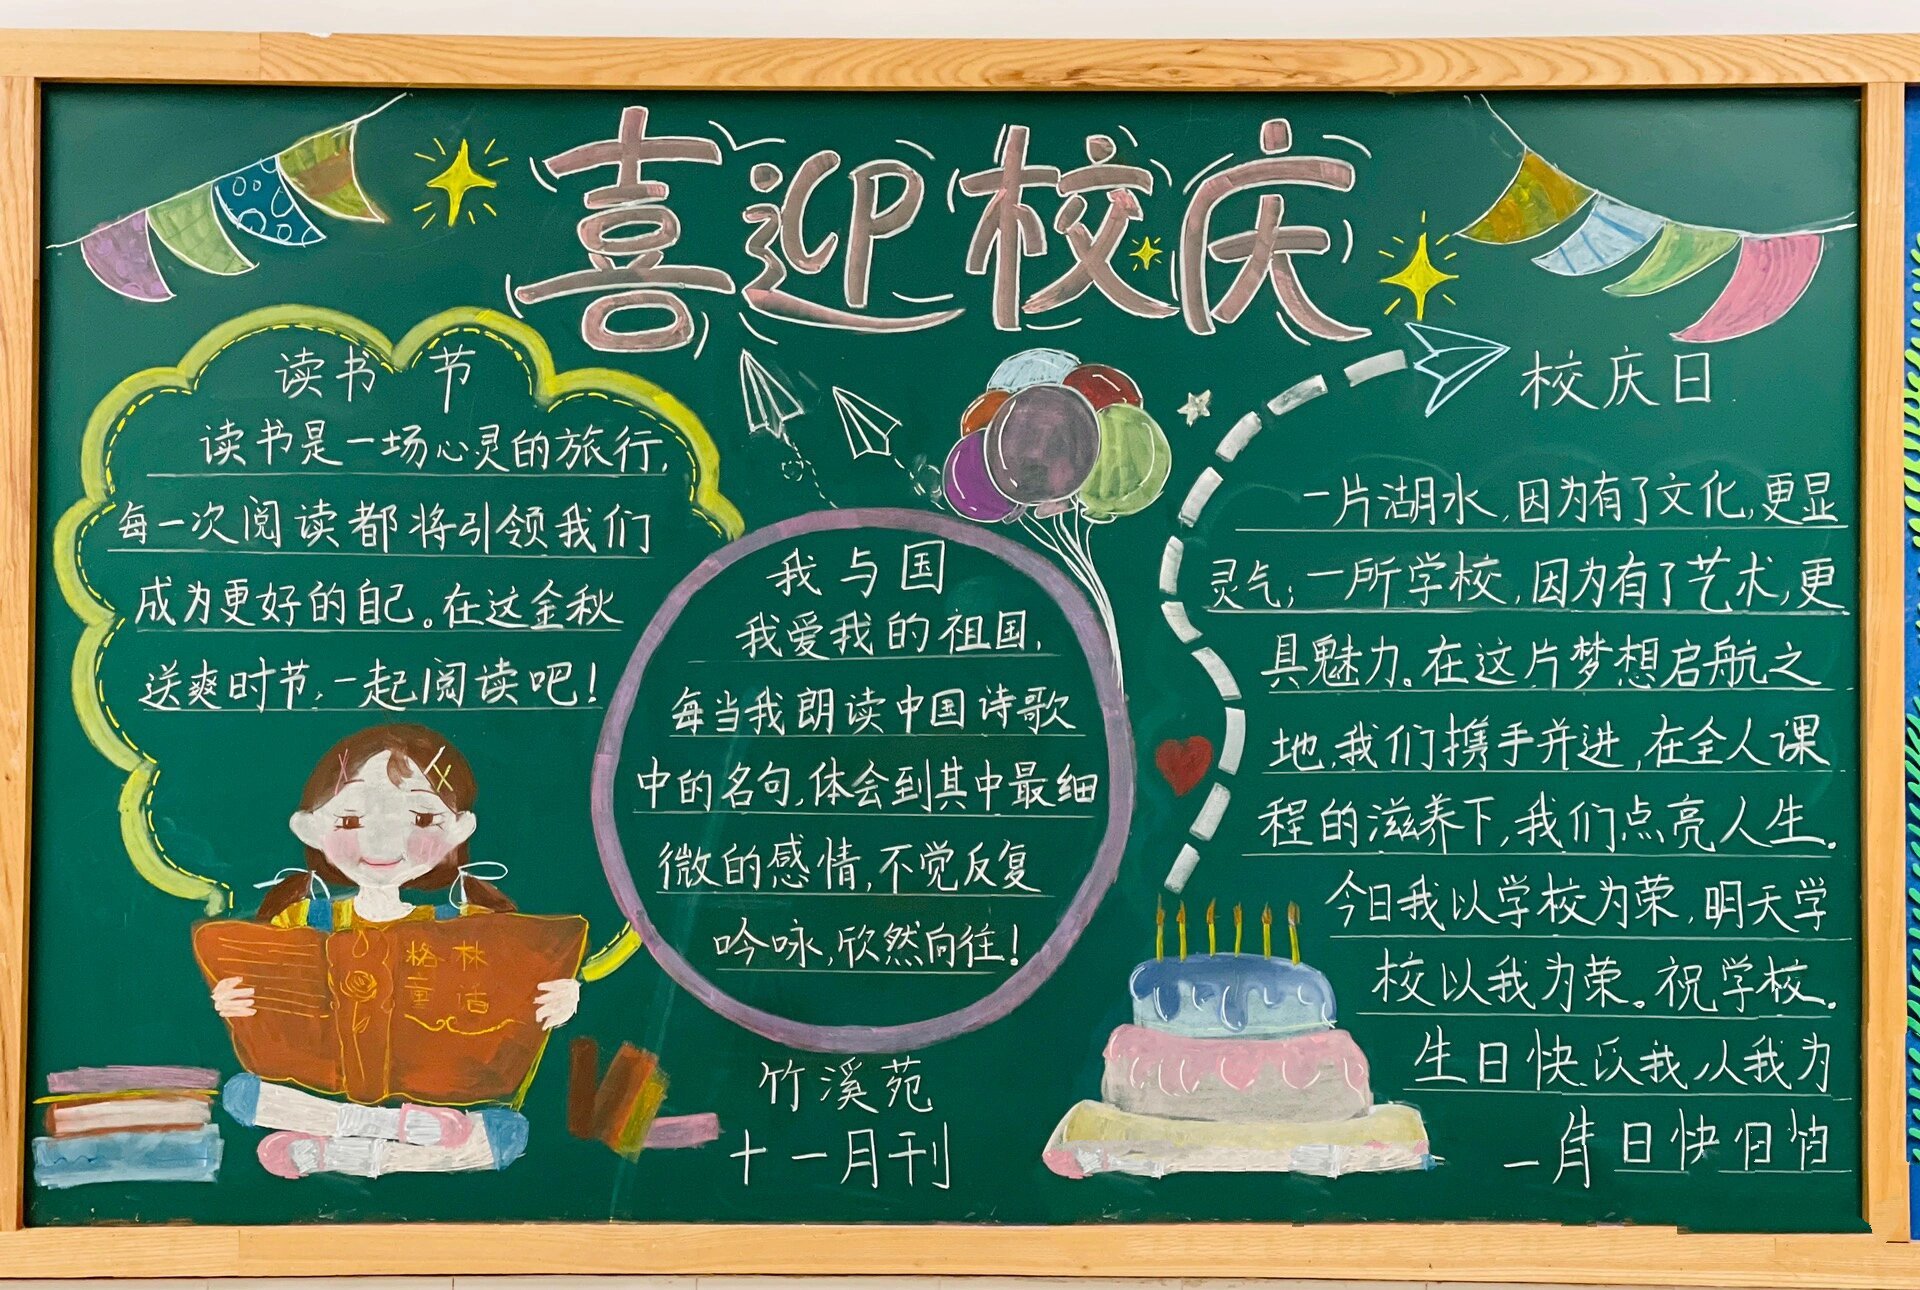 喜迎校庆
读书节
读书是一场心灵的旅行,
每一次阅读都将引领我们
成为更好的自己。在这金秋
送爽时节,一起阅读吧!
格林
童话
我与国
我爱我的祖国,
每当我朗读中国诗歌
中的名句,体会到其中最细
微的感情,不觉反复
吟咏,欣然向往!
竹溪苑
十一月刊
校庆日
一片湖水,因为有了文化,更显
灵气;一所学校,因为有了艺术,更
具魅力。在这片梦想启航之
地,我们携手并进,在全人课
程的滋养下,我们点亮人生。
今日我以学校为荣,明天学
校以我为荣。祝学校。
生日快 我 我为
一 日快